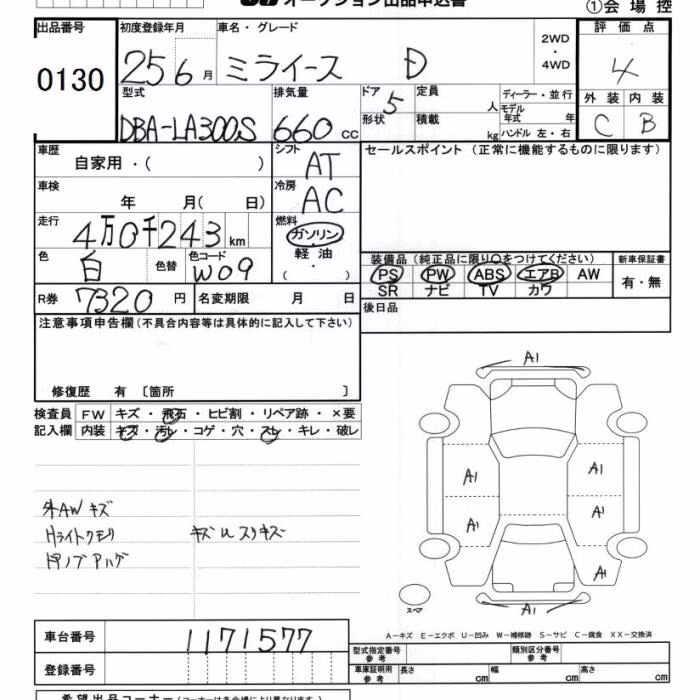 オークション出品申込書
①会場控
出品番号 0130
初度登録年月 25 6月
車名・グレード ミライース D
2WD・4WD
評価点 4
型式 DBA-LA300S
排気量 660cc
ドア 5
形状
定員 人
積載 kg
ディーラー・並行
モデル年式 年
ハンドル 左・右
外装 内装
C B
車歴 自家用・( )
シフト AT
セールスポイント (正常に機能するものに限ります)
車検 年 月( 日)
冷房 AC
走行 4万0千243km
燃料 ガソリン
軽油
・( )
色 白
色替
色コード W09
装備品 (純正品に限り○をつけてください)
新車保証書
PS PW ABS エアB AW
有・無
SR ナビ TV カワ
R券 7320円
名変期限 月 日
後日品
注意事項申告欄(不具合内容等は具体的に記入して下さい)
修復歴 有 〔箇所 〕
検査員 FW キズ・飛石・ヒビ割・リペア跡・×要
記入欄 内装 キズ・汚レ・コゲ・穴・スレ・キレ・破レ
A1
A1 A1
A1 A1
A1
外AW キズ
Hライトクモリ キズ U スリキズ
ドアノブ アハゲ
スペア
A-キズ E-エクボ U-凹み W-補修跡 S-サビ C-腐食 XX-交換済
車台番号 1171577
型式指定番号 参考
類別区分番号 参考
登録番号
車庫証明用 参考 長さ cm 幅 cm 高さ cm
希望出品コーナー(コーナーは各会場により異なります。)